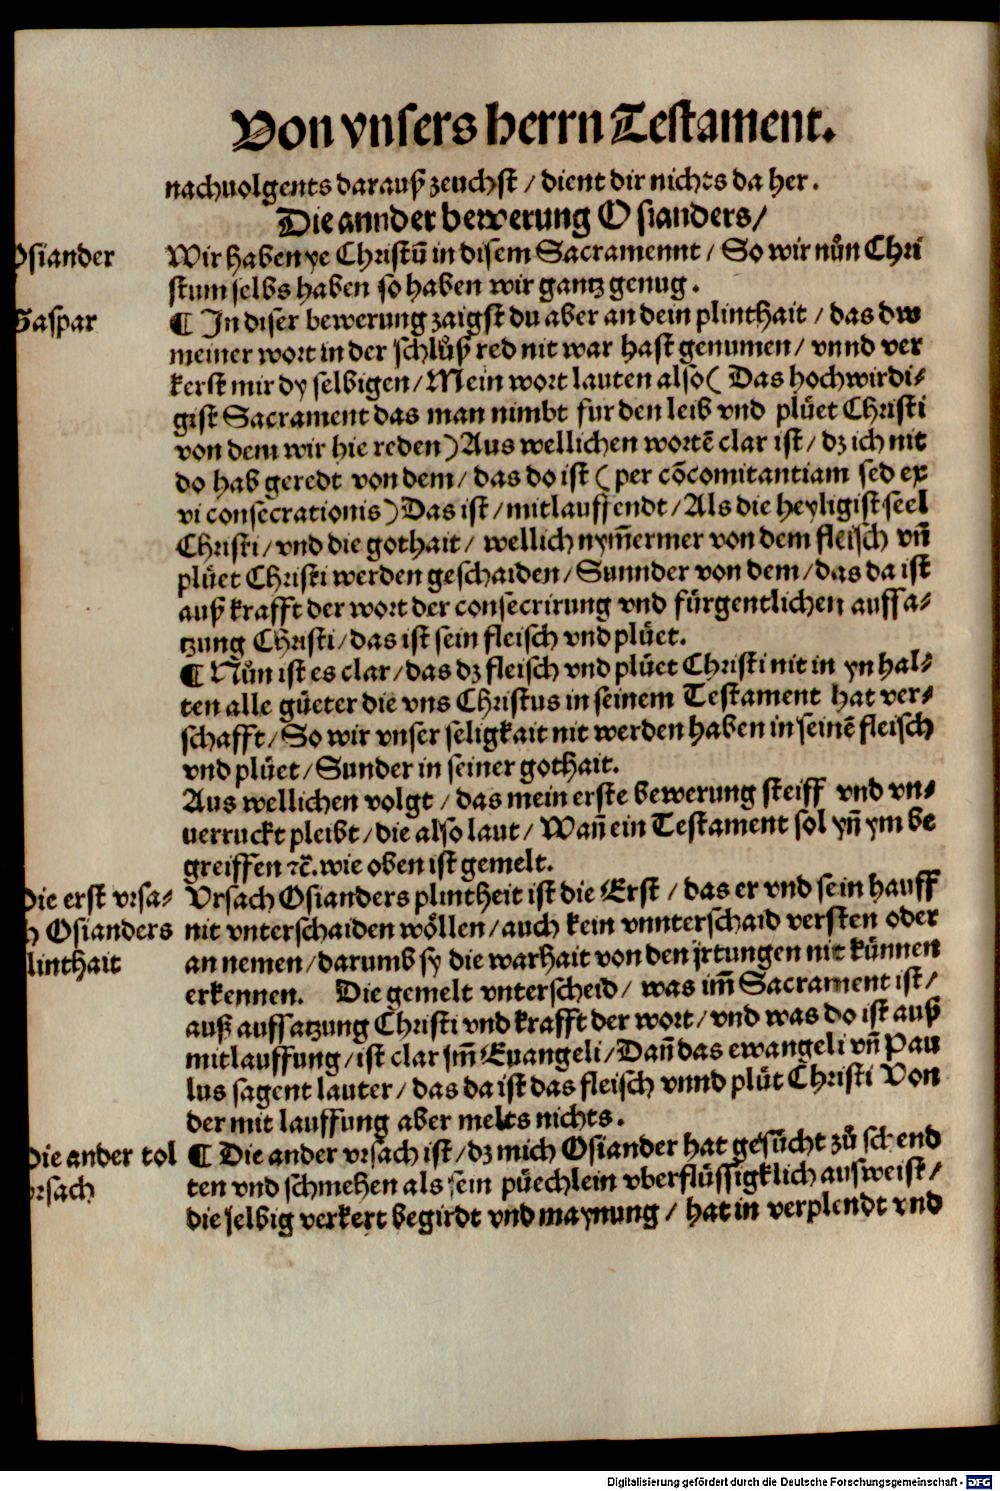 Von vnsers herrn Testament.
nachuolgents darauß zeuchst / dient dir nichts da her.
Die annder bewerung Osianders/
Osiander
Wir haben ye Christū in disem Sacramennt / So wir nůn Chri
stum selbs haben so haben wir gantz genug.
Gaspar
¶ In diser bewerung zaigst du aber an dein plinthait / das dw
meiner wort in der schlůß red nit war hast genumen / vnnd ver
kerst mir dy selbigen / Mein wort lauten also ( Das hochwirdi⸗
gist Sacrament das man nimbt fur den leib vnd plüet Christi
von dem wir hie reden ) Aus wellichen wortē clar ist / dz ich nit
do hab geredt von dem / das do ist ( per cōcomitantiam sed ex
vi consecrationis ) Das ist / mitlauffendt / Als die heyligist seel
Christi / vnd die gothait / wellich nym̄ermer von dem fleisch vn̄
plüet Christi werden geschaiden / Sunnder von dem / das da ist
auß krafft der wort der consecrirung vnd fürgentlichen auffsa⸗
tzung Christi / das ist sein fleisch vnd plüet.
¶ Nůn ist es clar / das dz fleisch vnd plüet Christi nit in yn hal⸗
ten alle güeter die vns Christus in seinem Testament hat ver⸗
schafft / So wir vnser seligkait nit werden haben in seinē fleisch
vnd plüet / Sunder in seiner gothait.
Aus wellichen volgt / das mein erste bewerung steiff vnd vn⸗
uerruckt pleibt / die also laut / Wan̄ ein Testament sol yn̄ ym be
greiffen ꝛc̄. wie oben ist gemelt.
Die erst vrsa⸗
h Osianders
linthait
Vrsach Osianders plintheit ist die Erst / das er vnd sein hauff
nit vnterschaiden wöllen / auch kein vnnterschaid versten oder
an nemen / darumb sy die warhait von den jrtungen nit künnen
erkennen. Die gemelt vnterscheid / was im̄ Sacrament ist /
auß auffsatzung Christi vnd krafft der wort / vnd was do ist auß
mitlauffung / ist clar jm̄ Euangeli / Dan̄ das ewangeli vn̄ Pau
lus sagent lauter / das da ist das fleisch vnnd plüt Christi Von
der mit lauffung aber melts nichts.
Die ander tol
vrsach
¶ Die ander vrsach ist / dz mich Osiander hat gesücht zů schend
ten vnd schmehen als sein püechlein vberflüssigklich ausweist /
die selbig verkert begirdt vnd maynung / hat in verplendt vnd
Digitalisierung gefördert durch die Deutsche Forschungsgemeinschaft - DFG